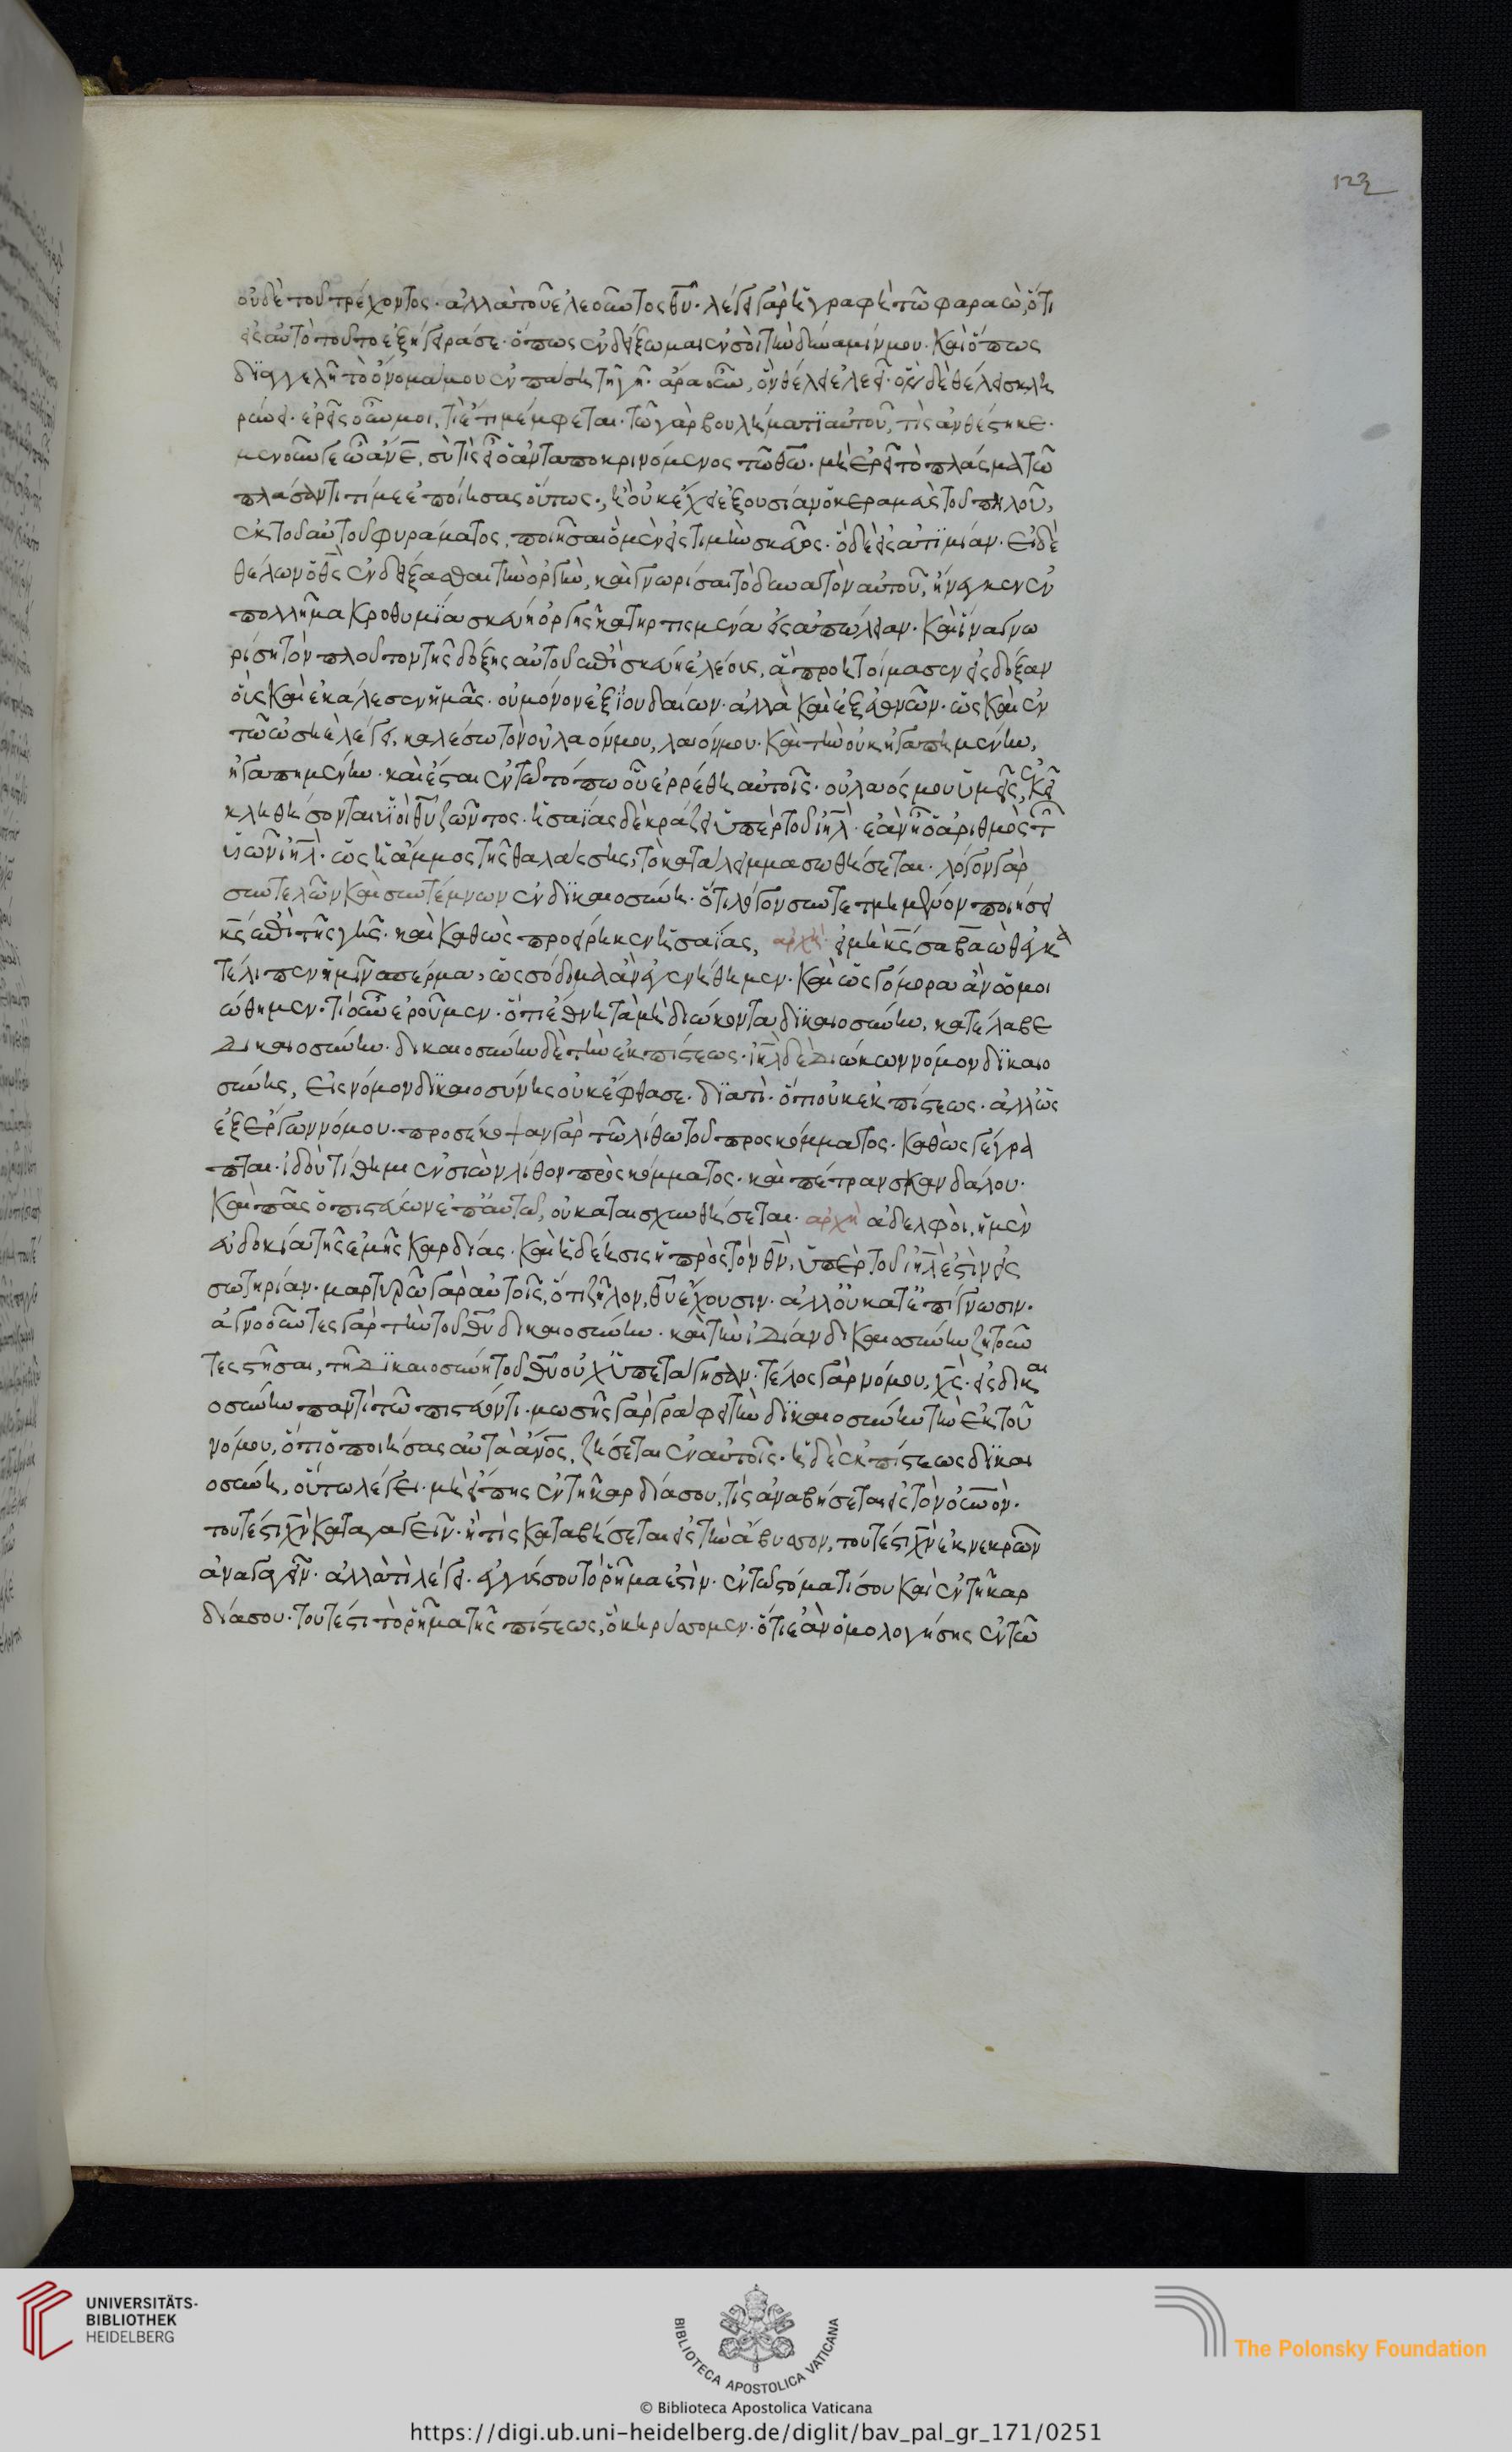 123
οὐδὲ τοῦ τρέχοντος· ἀλλὰ τοῦ ἐλεοῦντος θῦ· λέγει γὰρ ἡ γραφὴ τῶ φαραὼ, ὅτι
εἰς αὐτὸ τοῦτο ἐξήγειρά σε· ὅπως ἐνδείξωμαι ἐν σοὶ τὴν δύναμίν μου· καὶ ὅπως
διαγγελῆ τὸ ὄνομά μου ἐν πάση τῆ γῆ· ἄρα οὖν, ὃν θέλει ἐλεεῖ· ὃν δὲ θέλει σκλη
ρύνει· ἐρεῖς οὖν μοι, τί ἔτι μέμφεται· τῶ γὰρ βουλήματι αὐτοῦ, τίς ἀνθέστηκε·
μενοῦνγε ὦ ἄνε, σὺ τίς εἶ ὁ ἀνταποκρινόμενος τῶ θῶ· μὴ ἐρεῖ τὸ πλάσμα τῶ
πλάσαντι τί με ἐποίησας οὕτως· ἢ οὐκ ἔχει ἐξουσίαν ὁ κεραμεὺς τοῦ πηλοῦ,
ἐκ τοῦ αὐτοῦ φυράματος, ποιῆσαι ὃ μὲν εἰς τιμὴν σκεῦος· ὃ δὲ εἰς ἀτιμίαν· εἰ δὲ
θέλων ὁ θς ἐνδείξασθαι τὴν ὀργὴν, καὶ γνωρίσαι τὸ δυνατὸν αὐτοῦ, ἤνεγκεν ἐν
πολλῆ μακροθυμία σκεύη ὀργῆς κατηρτισμένα εἰς ἀπώλειαν· καὶ ἵνα γνω
ρίση τὸν πλοῦτον τῆς δόξης αὐτοῦ ἐπὶ σκεύη ἐλέους, ἃ προητοίμασεν εἰς δόξαν
οὓς καὶ ἐκάλεσεν ἡμᾶς· οὐ μόνον ἐξ ἰουδαίων· ἀλλὰ καὶ ἐξ ἐθνῶν· ὡς καὶ ἐν
τῶ ὠσηὲ λέγει, καλέσω τὸν οὐ λαόν μου, λαόν μου· καὶ τὴν οὐκ ἠγαπημένην,
ἠγαπημένην· καὶ ἔσται ἐν τῶ τόπω οὗ ἐρρέθη αὐτοῖς· οὐ λαός μου ὑμεῖς, ἐκεῖ
κληθήσονται υἱοὶ θῦ ζῶντος· ἡσαΐας δὲ κράζει ὑπὲρ τοῦ ιηλ· ἐὰν ἦ ὁ ἀριθμὸς τῶν
υἱῶν ιηλ· ὡς ἡ ἄμμος τῆς θαλάσσης, τὸ κατάλειμμα σωθήσεται· λόγον γὰρ
συντελῶν καὶ συντέμνων ἐν δικαιοσύνη· ὅτι λόγον συντετμημένον ποιήσει
κς ἐπὶ τῆς γῆς· καὶ καθὼς προείρηκεν ἡσαΐας, ἀρχὴ εἰ μὴ κς σαβαὼθ ἐγκα
τέλιπεν ἡμῖν σπέρμα, ὡς σόδομα ἂν ἐγενήθημεν· καὶ ὡς γόμορα ἂν ὁμοι
ώθημεν· τί οὖν ἐροῦμεν· ὅτι ἔθνη τὰ μὴ διώκοντα δικαιοσύνην, κατέλαβε
δικαιοσύνην· δικαιοσύνην δὲ τὴν ἐκ πίστεως· ιηλ δὲ διώκων νόμον δικαιο
σύνης, εἰς νόμον δικαιοσύνης οὐκ ἔφθασε· διατί· ὅτι οὐκ ἐκ πίστεως· ἀλλ' ὡς
ἐξ ἔργων νόμου· προσέκοψαν γὰρ τῶ λίθω τοῦ προσκόμματος· καθὼς γέγρα
πται· ἰδοὺ τίθημι ἐν σιὼν λίθον προσκόμματος· καὶ πέτραν σκανδάλου·
καὶ πᾶς ὁ πιστεύων ἐπ' αὐτῶ, οὐ καταισχυνθήσεται· ἀρχὴ ἀδελφοὶ, ἡ μὲν
εὐδοκία τῆς ἐμῆς καρδίας· καὶ ἡ δέησις ἡ πρὸς τὸν θν, ὑπὲρ τοῦ ιηλ ἐστὶν εἰς
σωτηρίαν· μαρτυρῶ γὰρ αὐτοῖς, ὅτι ζῆλον θῦ ἔχουσιν· ἀλλ' οὐ κατ' ἐπίγνωσιν·
ἀγνοοῦντες γὰρ τὴν τοῦ θῦ δικαιοσύνην· καὶ τὴν ἰδίαν δικαιοσύνην ζητοῦν
τες στῆσαι, τῆ δικαιοσύνη τοῦ θῦ οὐχ ὑπετάγησαν· τέλος γὰρ νόμου, χς· εἰς δικαι
οσύνην παντὶ τῶ πιστεύοντι· μωσῆς γὰρ γράφει τὴν δικαιοσύνην τὴν ἐκ τοῦ
νόμου, ὅτι ὁ ποιήσας αὐτὰ ἄνος, ζήσεται ἐν αὐτοῖς· ἡ δὲ ἐκ πίστεως δικαι
οσύνη, οὕτω λέγει· μὴ εἴπης ἐν τῆ καρδία σου, τίς ἀναβήσεται εἰς τὸν οὐνον·
τουτέστι χν καταγαγεῖν· ἢ τίς καταβήσεται εἰς τὴν ἄβυσσον, τουτέστι χν ἐκ νεκρῶν
ἀναγαγεῖν· ἀλλὰ τί λέγει· ἐγγύς σου τὸ ῥῆμα ἐστὶν· ἐν τῶ στόματί σου καὶ ἐν τῆ καρ
δία σου· τουτέστι τὸ ῥῆμα τῆς πίστεως, ὃ κηρύσσομεν· ὅτι ἐὰν ὁμολογήσης ἐν τῶ
UNIVERSITÄTS-
BIBLIOTHEK
HEIDELBERG
BIBLIOTECA APOSTOLICA VATICANA
The Polonsky Foundation
© Biblioteca Apostolica Vaticana
https://digi.ub.uni-heidelberg.de/diglit/bav_pal_gr_171/0251